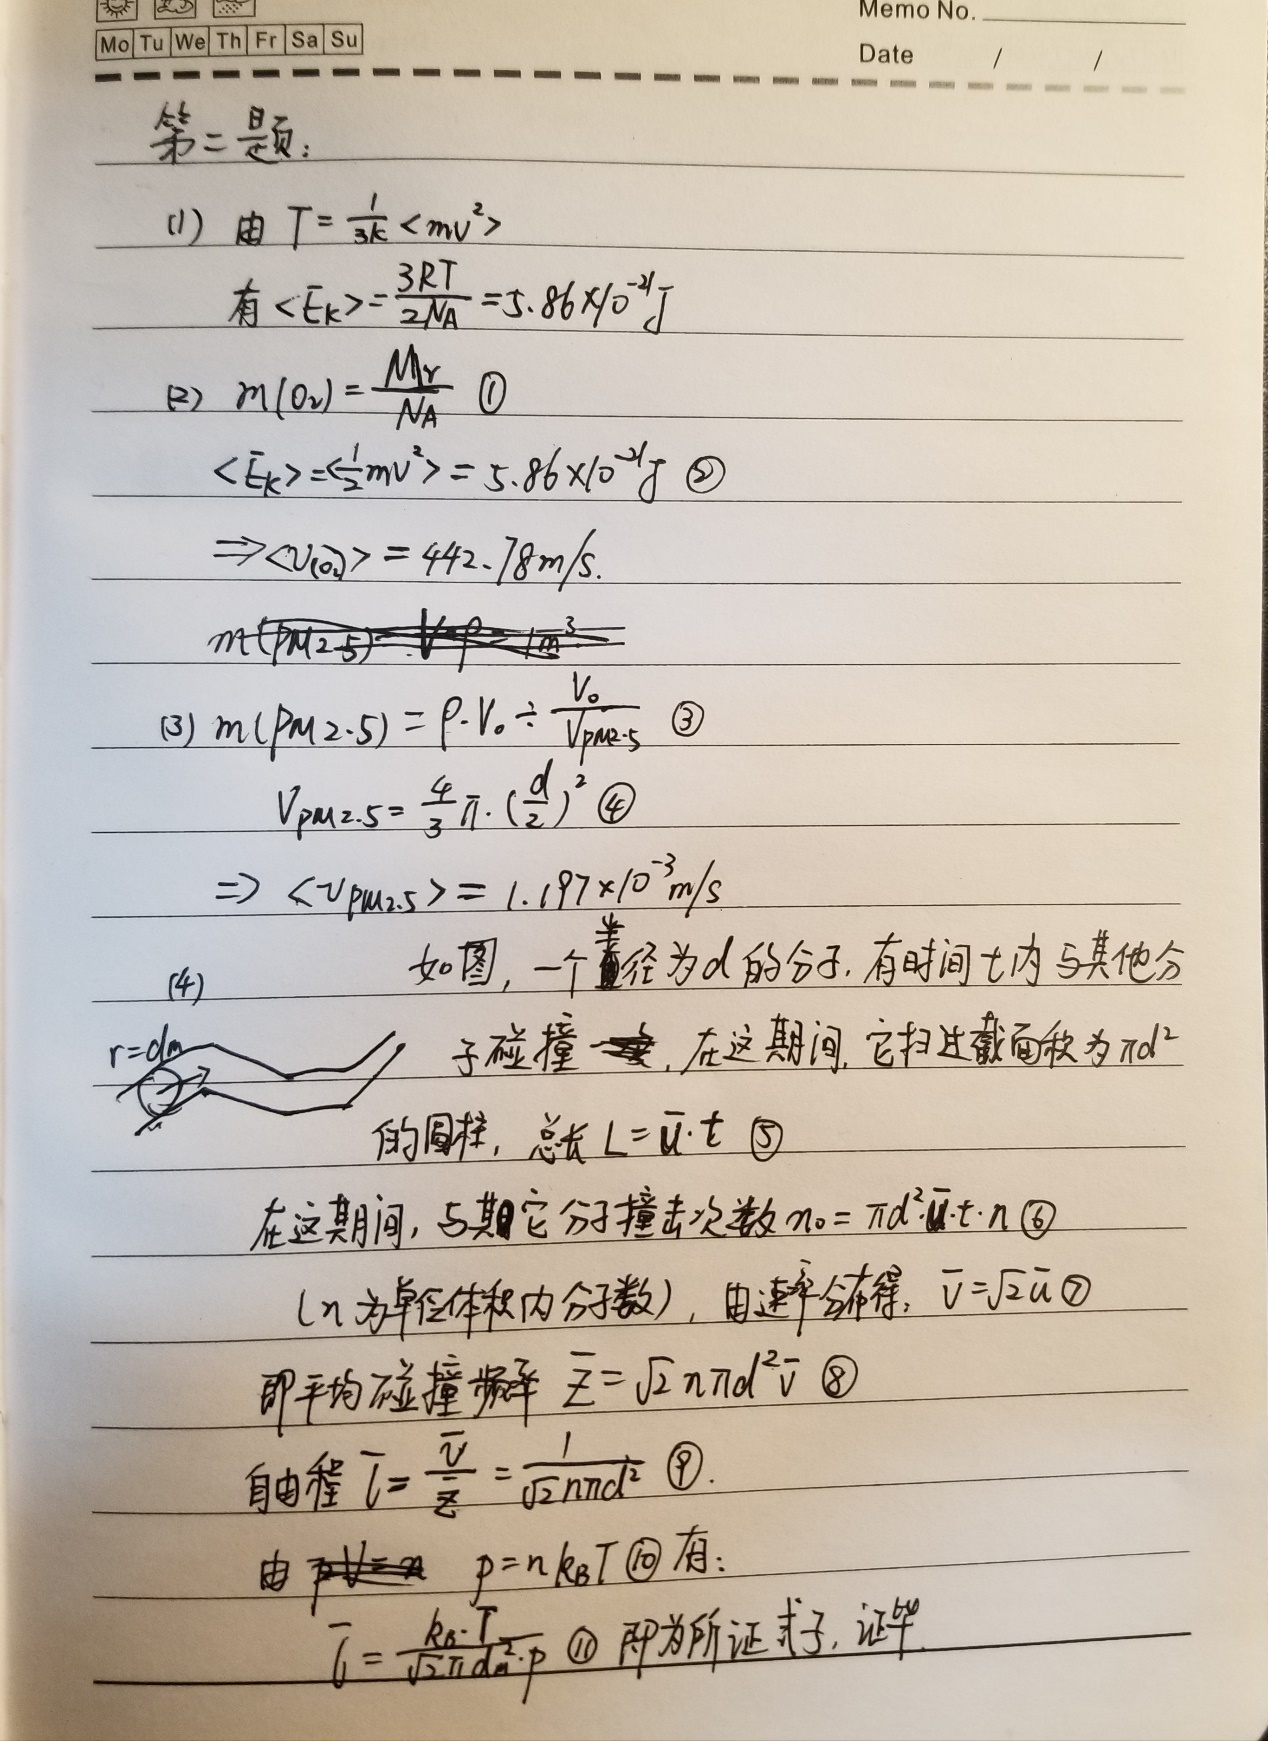 Memo No.
Mo Tu We Th Fr Sa Su
Date / /
第二题:
(1) 由 T = 1/3k <mv²>
有 <E̅k> = 3RT/2NA = 5.86×10⁻²¹J
(2) m(O₂) = Mr/NA ①
<E̅k> = <1/2 mv²> = 5.86×10⁻²¹J ②
⇒ <v(O₂)> = 442.78m/s.
(3) m(PM2.5) = ρ·V₀ ÷ V₀/VPM2.5 ③
VPM2.5 = 4/3 π·(d/2)² ④
⇒ <vPM2.5> = 1.197×10⁻³m/s
(4) 如图, 一个半径为d的分子, 有时间t内与其他分
r=dm 子碰撞, 在这期间, 它扫过截面积为πd²
的圆柱, 总长 L = u̅·t ⑤
在这期间, 与其它分子撞击次数 n₀ = πd²·u̅·t·n ⑥
(n为单位体积内分子数), 由速率分布得, v̅=√2u̅ ⑦
即平均碰撞频率 Z̅ = √2nπd²v̅ ⑧
自由程 l̅ = v̅/Z̅ = 1/√2nπd² ⑨.
由 p = nkBT ⑩ 有:
l̅ = kB·T/√2πdm²·p ⑪ 即为所证式子, 证毕.